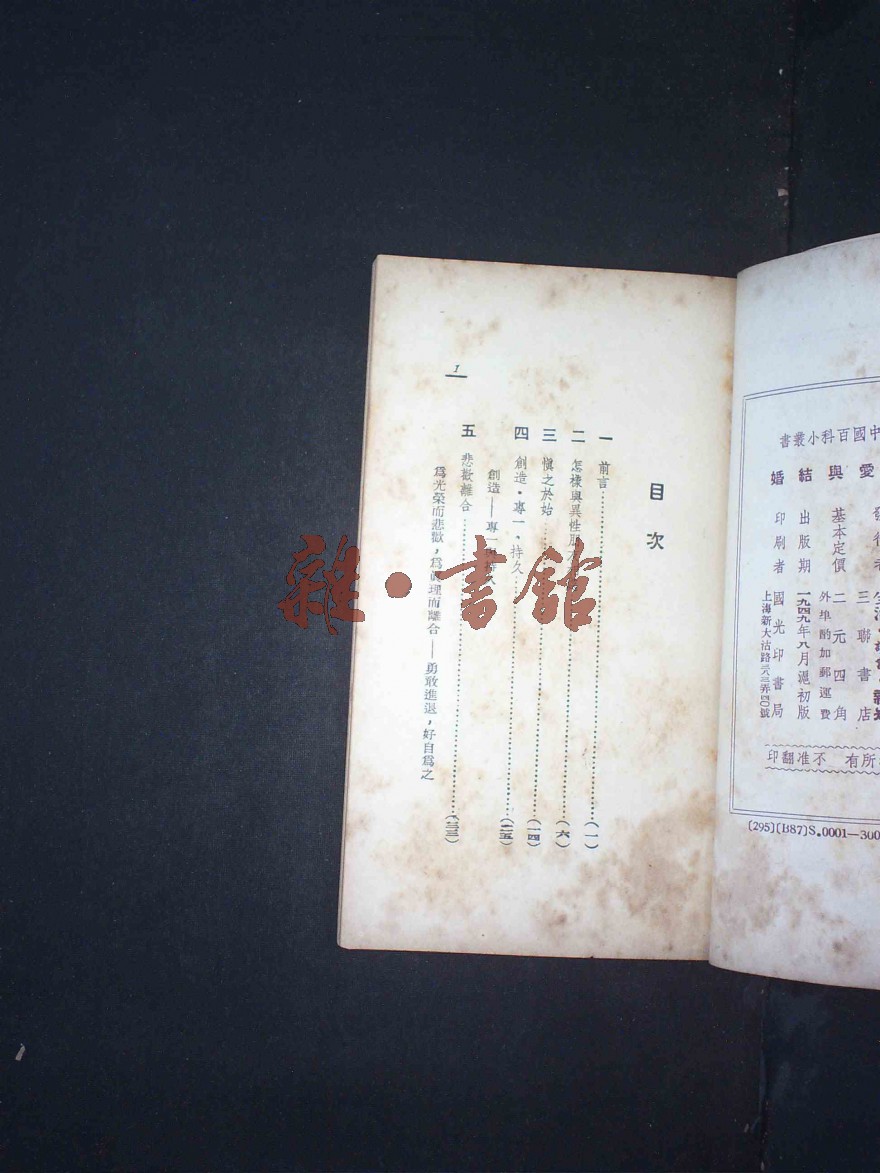 中國百科小叢書
愛與結婚
基本定價 二元四角
外埠酌加郵運費
三聯書店
出版期 一九四九年八月滬初版
印刷者 國光印書局
上海新大沽路
所有 不准翻印
[295](B87)S.0001—300
目次
一 前言 (一)
二 怎樣與異性 (六)
三 慎之於始 (一四)
四 創造·專一·持久 (二五)
創造——專一
五 悲歡離合 (三三)
爲光榮而悲歡，爲眞理而離合——勇敢進退，好自爲之
I
雜·書館